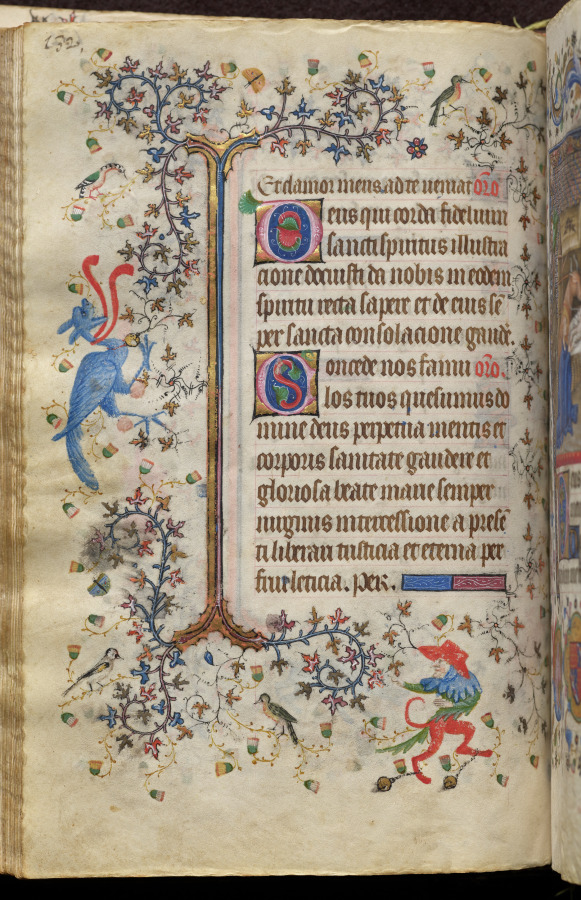 132
Et clamor meus ad te ueniat oro
Deus qui corda fidelium
sancti spiritus illustra
cione docuisti da nobis in eodem
spiritu recta sapere et de eius sē
per sancta consolacione gaudē.
Concede nos famu oro.
los tuos quesumus do
mine deus perpetua mentis et
corporis sanitate gaudere et
gloriosa beate marie semper
uirginis intercessione a presē
ti liberari tristicia et eterna per
frui leticia. Per.